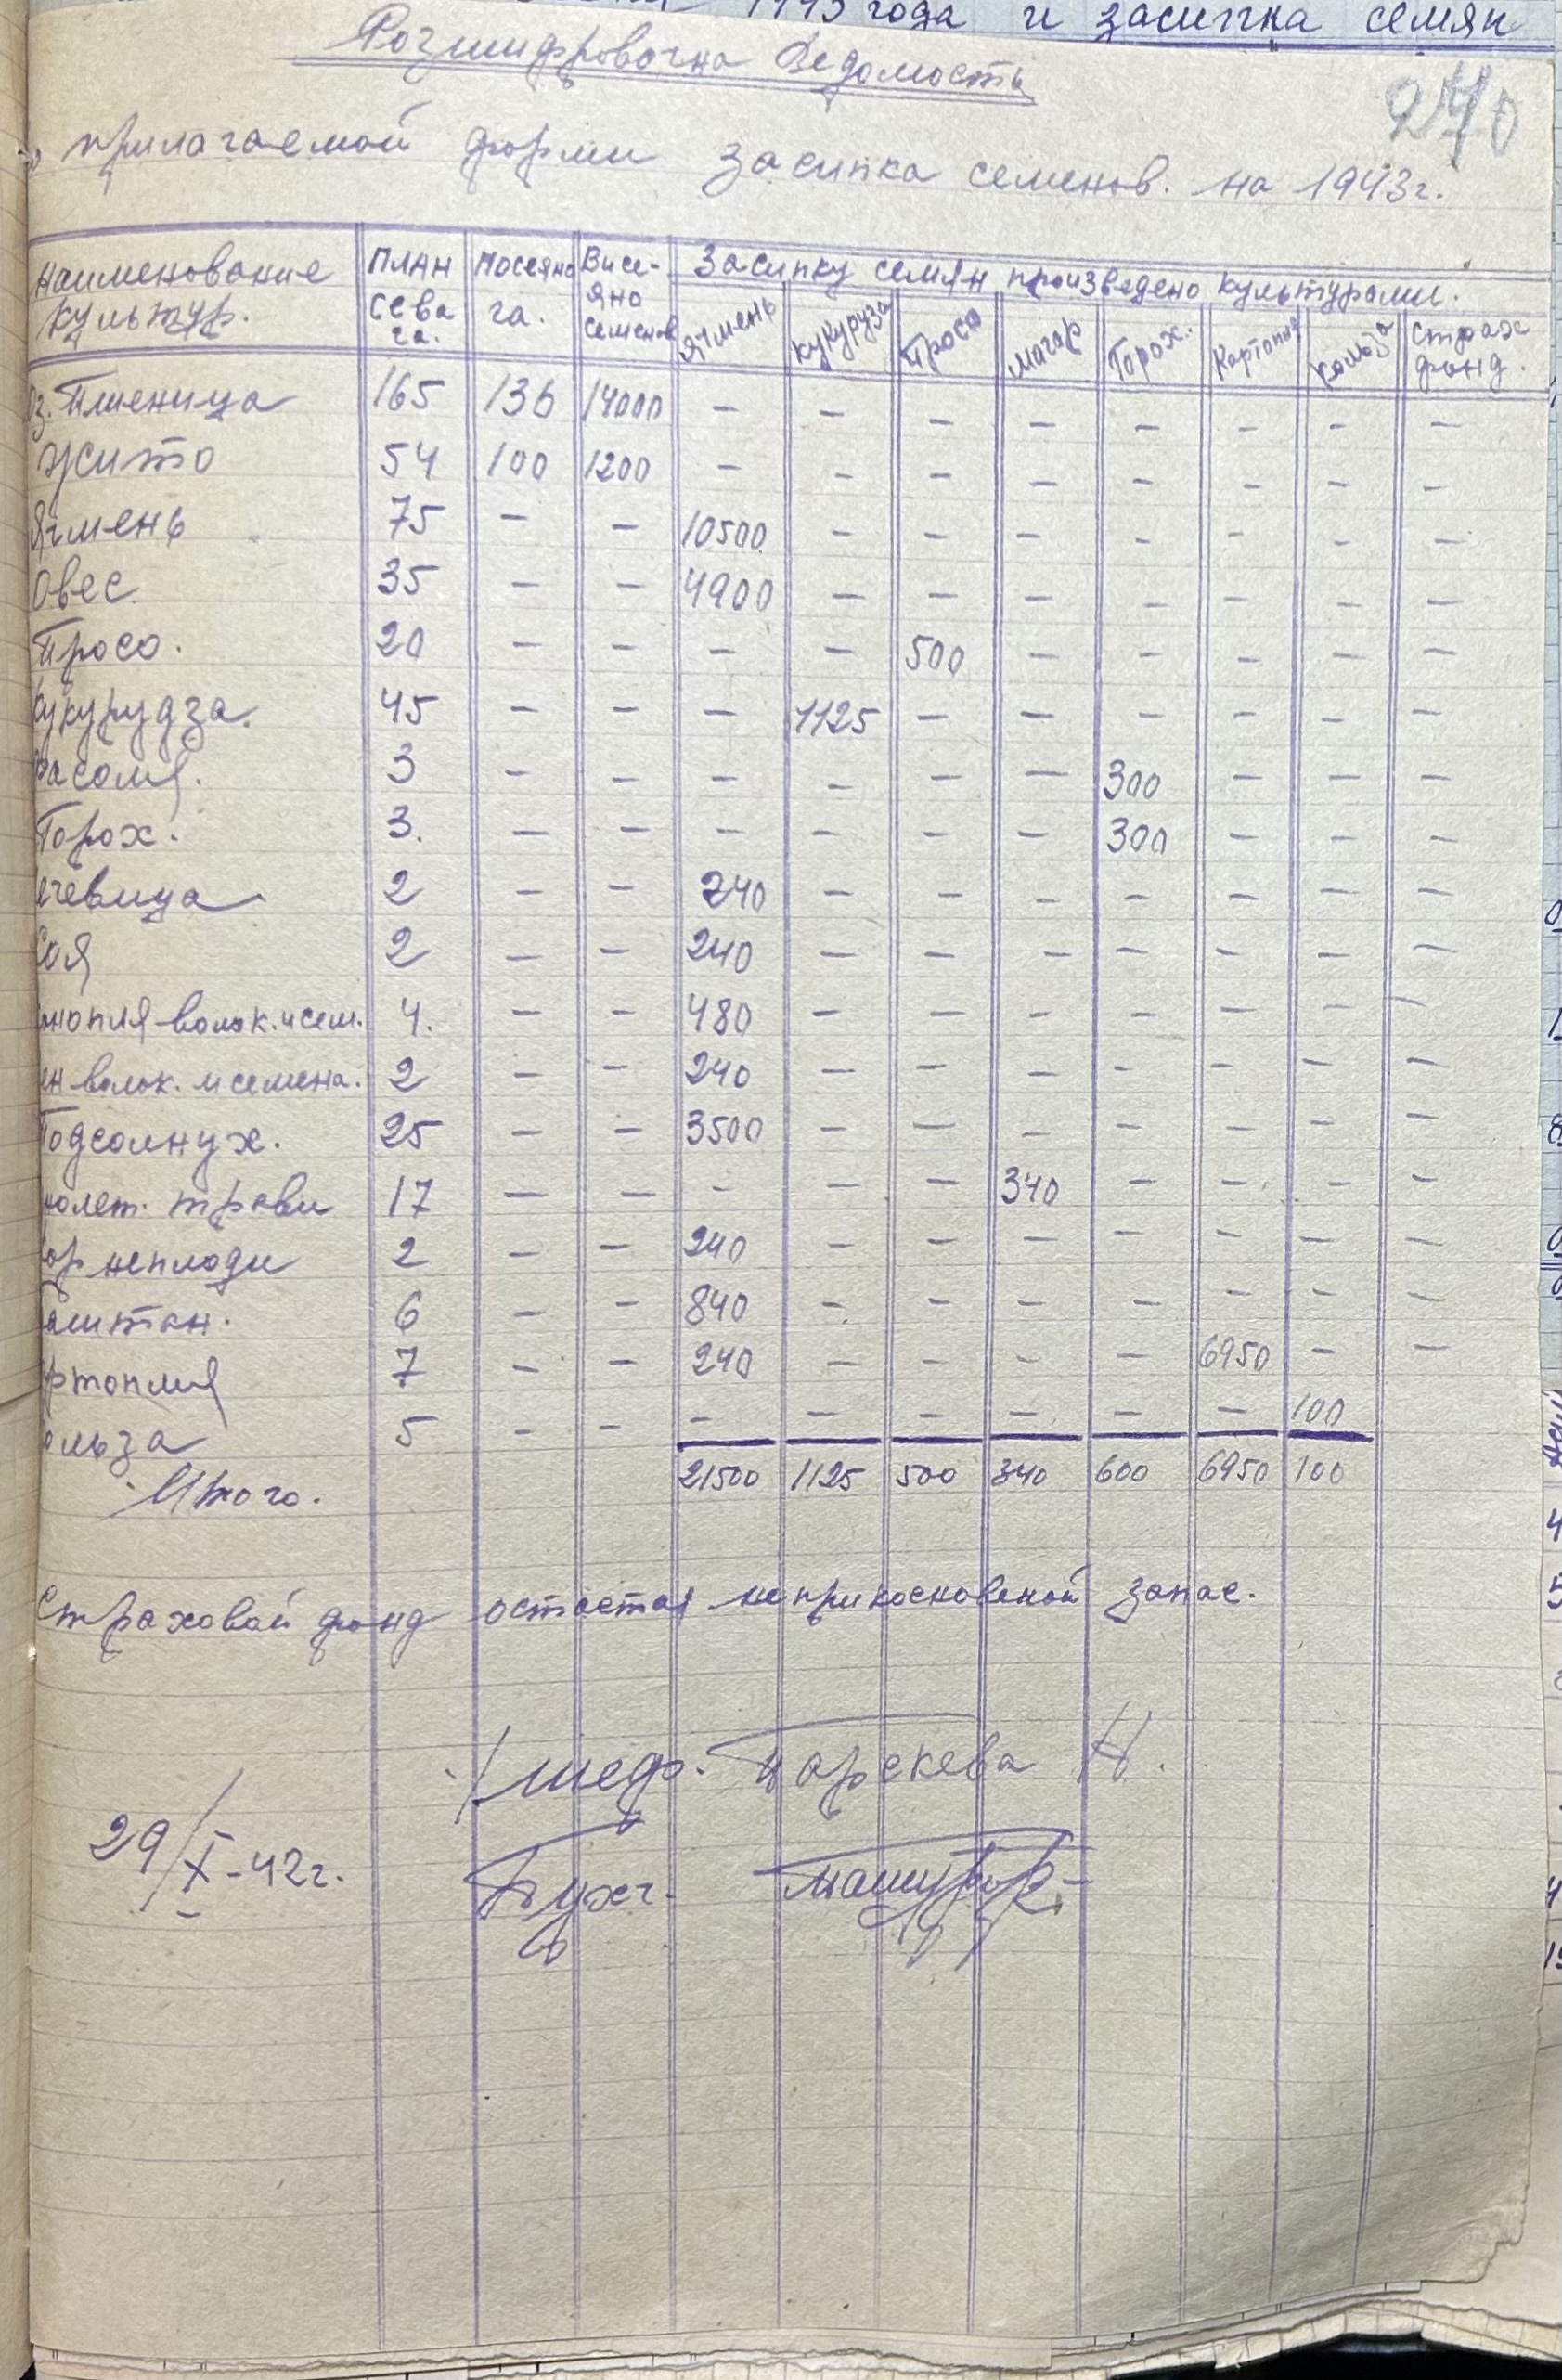 1943 года и засипка семян
Розшифровочна Ведомость
240
прилагаемой форми засипка семенов. на 1943г.
Наименование культур. | План сева га. | Посеяно га. | Висеяно семенов | Засипку семян произведено культурами.
Ячмень | Кукуруза | Просо | Магар | Горох. | Картопля | Кользa | Страх фонд.
Оз. Пшеница 165 136 14000 – – – – – – – –
Жито 54 100 1200 – – – – – – – –
Ячмень 75 – – 10500 – – – – – – –
Овес 35 – – 4900 – – – – – – –
Просо. 20 – – – – 500 – – – – –
Кукурудза. 45 – – – 1125 – – – – – –
Фасоля. 3 – – – – – – 300 – – –
Горох. 3. – – – – – – 300 – – –
ечевица 2 – – 240 – – – – – – –
Соя 2 – – 240 – – – – – – –
онопля волок. и сем. 4. – – 480 – – – – – – –
ен волок. и семена. 2 – – 240 – – – – – – –
Подсолнух. 25 – – 3500 – – – – – – –
нолет. трави 17 – – – – – 340 – – – –
кор неплоди 2 – – 240 – – – – – – –
аштан. 6 – – 840 – – – – – – –
ртопля 7 – – 240 – – – – 6950 – –
ольза 5 – – – – – – – – 100
Итого. 21500 1125 500 340 600 6950 100
Страховой фонд остается неприкосновеной запас.
Парскева Н.
29/X-42г. Бухг.